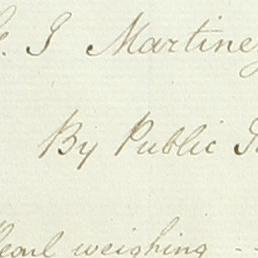 J Martinez
By Public
Pearl weighing